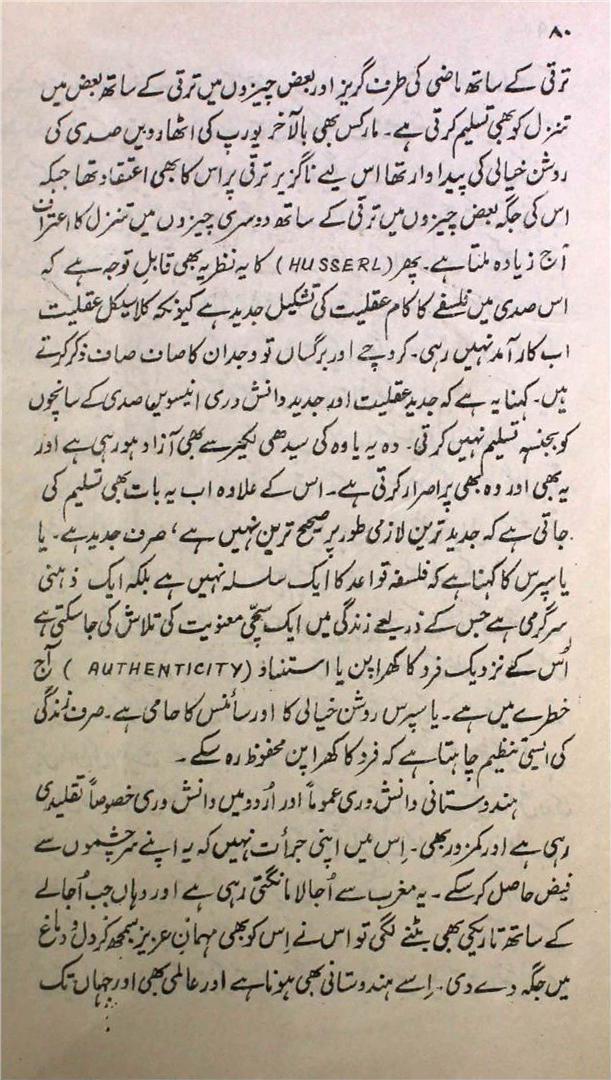 ۸۰
ترقی کے ساتھ ماضی کی طرف گریز اور بعض چیزوں میں ترقی کے ساتھ بعض میں
تنزل کو بھی تسلیم کرتی ہے۔ مارکس بھی بالآخر یورپ کی اٹھارویں صدی کی
روشن خیالی کی پیداوار تھا اس لیے ناگزیر ترقی پر اس کا بھی اعتقاد تھا جبکہ
اس کی جگہ بعض چیزوں میں ترقی کے ساتھ دوسری چیزوں میں تنزل کا اعتراف
آج زیادہ ملتا ہے۔ پھر (HUSSERL) کا یہ نظریہ بھی قابلِ توجہ ہے کہ
اس صدی میں فلسفے کا کام عقلیت کی تشکیل جدید ہے کیونکہ کلاسیکل عقلیت
اب کارآمد نہیں رہی۔ کروچے اور برگساں تو وجدان کا صاف صاف ذکر کرتے
ہیں۔ کہنا یہ ہے کہ جدید عقلیت اور جدید دانش وری انیسویں صدی کے سانچوں
کو بجنسہٖ تسلیم نہیں کرتی۔ وہ یہ یا وہ کی سیدھی لکیر سے بھی آزاد ہو رہی ہے اور
یہ بھی اور وہ بھی پر اصرار کرتی ہے۔ اس کے علاوہ اب یہ بات بھی تسلیم کی
جاتی ہے کہ جدید ترین لازمی طور پر صحیح ترین نہیں ہے، صرف جدید ہے۔ یا
یاسپرس کا کہنا ہے کہ فلسفہ قواعد کا ایک سلسلہ نہیں ہے بلکہ ایک ذہنی
سرگرمی ہے جس کے ذریعے زندگی میں ایک سچی معنویت کی تلاش کی جاسکتی ہے
اُس کے نزدیک فرد کا کھراپن یا استناد (AUTHENTICITY) آج
خطرے میں ہے۔ یاسپرس روشن خیالی کا اور سائنس کا حامی ہے۔ صرف زندگی
کی ایسی تنظیم چاہتا ہے کہ فرد کا کھراپن محفوظ رہ سکے۔
ہندوستانی دانش وری عموماً اور اُردو میں دانش وری خصوصاً تقلیدی
رہی ہے اور کمزور بھی۔ اِس میں اپنی جرأت نہیں کہ یہ اپنے سرچشموں سے
فیض حاصل کر سکے۔ یہ مغرب سے اُجالا مانگتی رہی ہے اور وہاں جب اُجالے
کے ساتھ تاریکی بھی بٹنے لگی تو اس نے اِس کو بھی مہمانِ عزیز سمجھ کر دل و دماغ
میں جگہ دے دی۔ اِسے ہندوستانی بھی ہونا ہے اور عالمی بھی اور جہاں تک